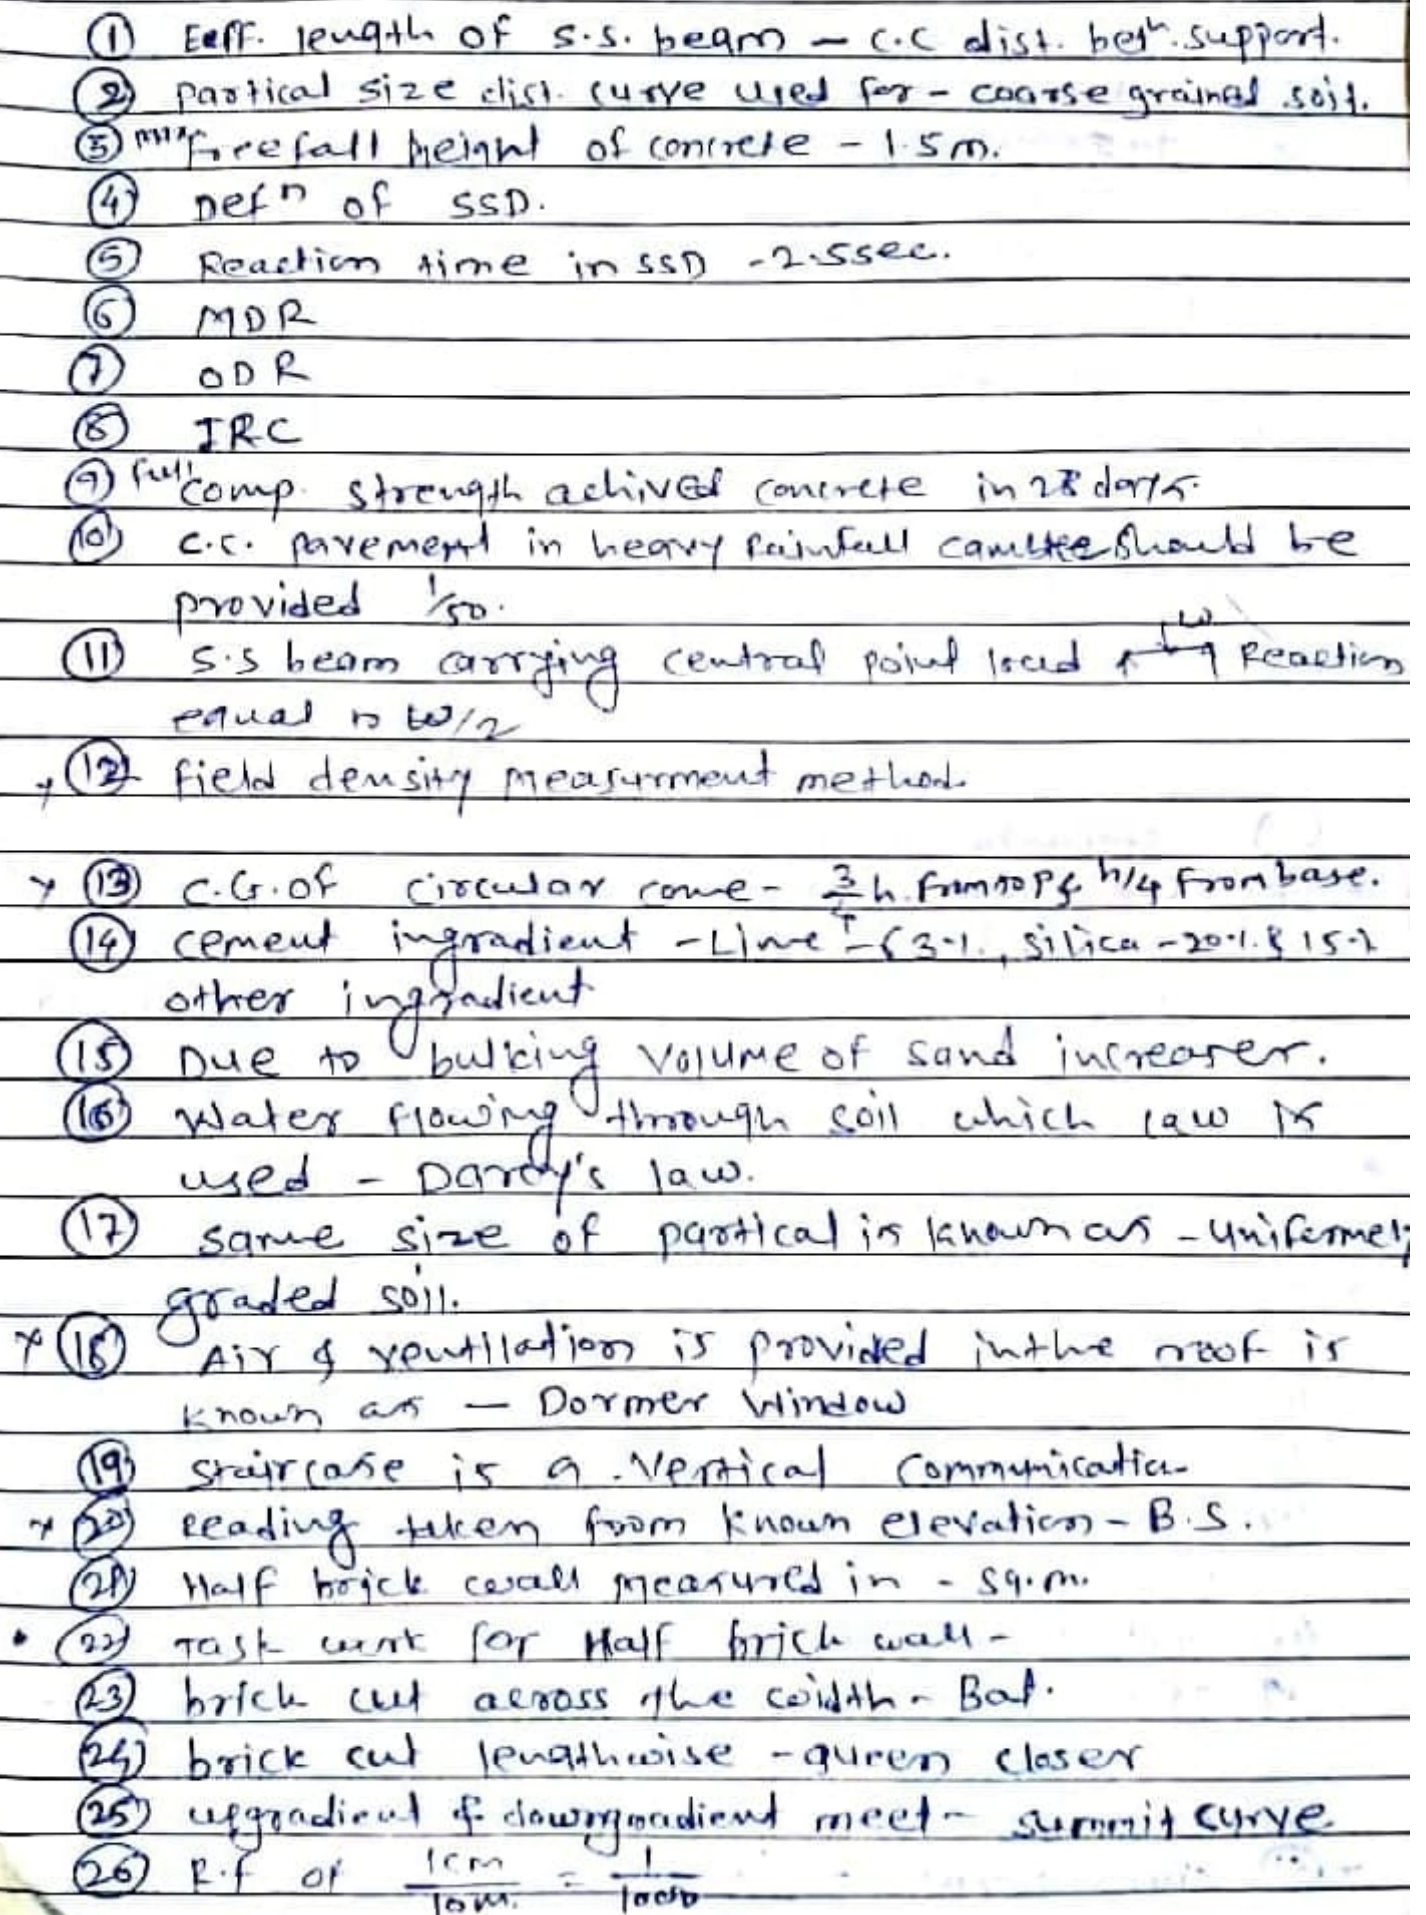 ① Eeff. length of s.s. beam – c.c dist. betn. support.
② partical size dist. curve used for – coarse grained soil.
③ max freefall height of concrete – 1.5m.
④ Defn of SSD.
⑤ Reaction time in SSD - 2.5sec.
⑥ MDR
⑦ ODR
⑧ IRC
⑨ full comp. strength achived concrete in 28 days.
⑩ c.c. pavement in heavy rainfall should be
provided 1/50.
⑪ s.s beam carrying central point load W Reaction
equal is W/2
⑫ field density measurment method.
⑬ C.G. of circular cone - 3/4 h. from top & h/4 from base.
⑭ cement ingradient - Lime - 63%., silica - 20%. & 15%
other ingradient
⑮ Due to bulking volume of sand increases.
⑯ Water flowing through soil which law is
used - Darcy's law.
⑰ same size of partical is known as - Uniformely
graded soil.
⑱ Air & ventilation is provided in the roof is
known as — Dormer Window
⑲ staircase is a Vertical Communication
⑳ Reading taken from known elevation - B.S.
㉑ Half brick wall measured in - sq.m.
㉒ Task work for Half brick wall -
㉓ brick cut across the width - Bat.
㉔ brick cut lengthwise - queen closer
㉕ upgradient & downgradient meet - summit curve
㉖ R.f of 1cm/10m. = 1/1000